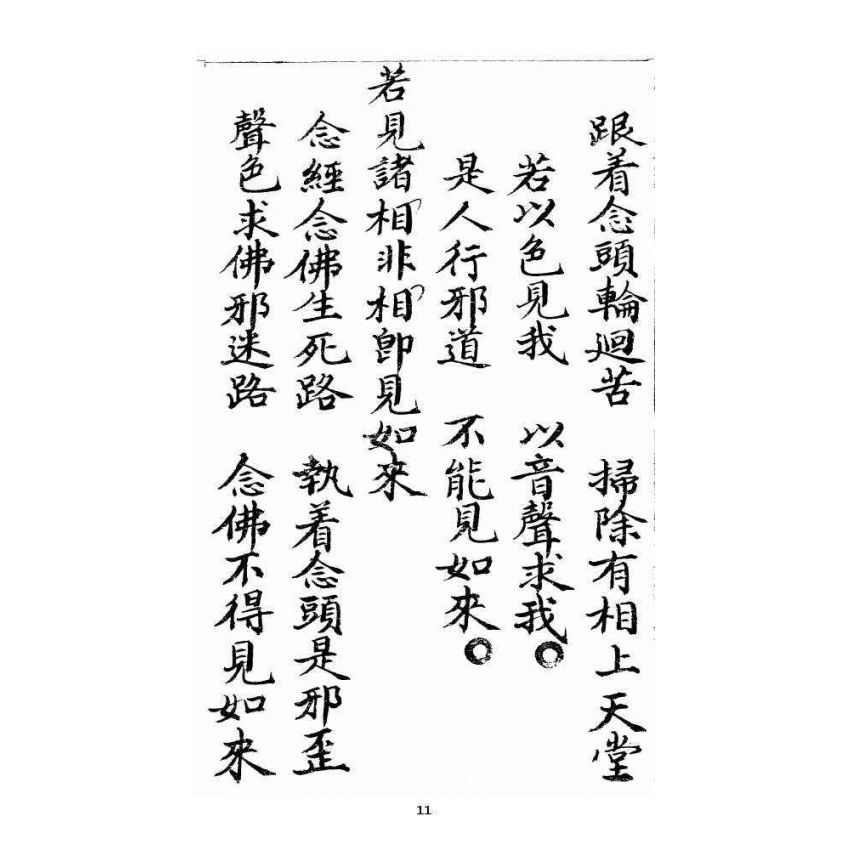 跟着念頭輪迴苦　掃除有相上天堂
若以色見我　以音聲求我
是人行邪道　不能見如來
若見諸相非相即見如來
念經念佛生死路　執着念頭是邪歪
聲色求佛邪迷路　念佛不得見如來
11